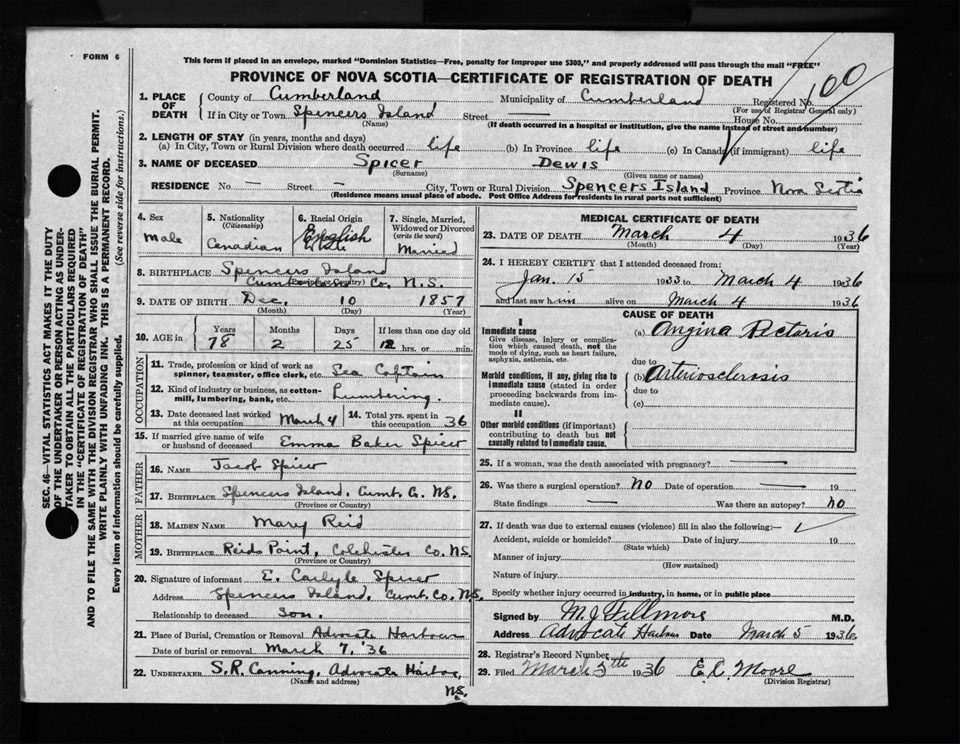 FORM 6
This form if placed in an envelope, marked "Dominion Statistics—Free, penalty for improper use $300," and properly addressed will pass through the mail "FREE"
PROVINCE OF NOVA SCOTIA—CERTIFICATE OF REGISTRATION OF DEATH
100
SEC. 46—VITAL STATISTICS ACT MAKES IT THE DUTY
OF THE UNDERTAKER OR PERSON ACTING AS UNDER-
TAKER TO OBTAIN ALL THE PARTICULARS REQUIRED
IN THE "CERTIFICATE OF REGISTRATION OF DEATH"
AND TO FILE THE SAME WITH THE DIVISION REGISTRAR WHO SHALL ISSUE THE BURIAL PERMIT.
WRITE PLAINLY WITH UNFADING INK. THIS IS A PERMANENT RECORD.
Every item of information should be carefully supplied. (See reverse side for instructions.)
1. PLACE OF DEATH
County of Cumberland Municipality of Cumberland Registered No.
(For use of Registrar General only)
If in City or Town Spencers Island Street — House No.
(Name) (If death occurred in a hospital or institution, give the name instead of street and number)
2. LENGTH OF STAY (in years, months and days)
(a) In City, Town or Rural Division where death occurred life (b) In Province life (c) In Canada (if immigrant) life
3. NAME OF DECEASED Spicer Dewis
(Surname) (Given name or names)
RESIDENCE No. — Street — City, Town or Rural Division Spencers Island Province Nova Scotia
(Residence means usual place of abode. Post Office Address for residents in rural parts not sufficient)
4. Sex Male
5. Nationality (Citizenship) Canadian
6. Racial Origin English
7. Single, Married, Widowed or Divorced (write the word) Married
8. BIRTHPLACE Spencers Island
Cumb. Co. N.S.
9. DATE OF BIRTH Dec. 10 1857
(Month) (Day) (Year)
10. AGE in Years 78 Months 2 Days 25 If less than one day old 12 hrs. or min.
OCCUPATION
11. Trade, profession or kind of work as spinner, teamster, office clerk, etc. Sea Captain
12. Kind of industry or business, as cotton-mill, lumbering, bank, etc. Lumbering.
13. Date deceased last worked at this occupation March 4
14. Total yrs. spent in this occupation 36
15. If married give name of wife or husband of deceased Emma Baker Spicer
FATHER
16. NAME Jacob Spicer
17. BIRTHPLACE Spencers Island. Cumb. Co. NS.
(Province or Country)
MOTHER
18. MAIDEN NAME Mary Reid
19. BIRTHPLACE Reids Point, Colchester Co. NS.
(Province or Country)
20. Signature of informant E. Carlyle Spicer
Address Spencers Island. Cumb. Co. N.S.
Relationship to deceased son.
21. Place of Burial, Cremation or Removal Advocate Harbour
Date of burial or removal March 7, '36
22. UNDERTAKER S.R. Canning, Advocate Harbor,
(Name and address) NS.
MEDICAL CERTIFICATE OF DEATH
23. DATE OF DEATH March 4 1936
(Month) (Day) (Year)
24. I HEREBY CERTIFY that I attended deceased from:
Jan. 15 1933 to March 4 1936
and last saw him alive on March 4 1936
CAUSE OF DEATH
I
Immediate cause
Give disease, injury or complication which caused death, not the mode of dying, such as heart failure, asphyxia, asthenia, etc.
(a) Angina Pectoris
due to
Morbid conditions, if any, giving rise to immediate cause (stated in order proceeding backwards from immediate cause).
(b) Arteriosclerosis
due to
(c)
II
Other morbid conditions (if important) contributing to death but not causally related to immediate cause.
25. If a woman, was the death associated with pregnancy? —
26. Was there a surgical operation? NO Date of operation — 19
State findings — Was there an autopsy? no
27. If death was due to external causes (violence) fill in also the following:—
Accident, suicide or homicide? Date of injury 19
(State which)
Manner of injury
(How sustained)
Nature of injury
Specify whether injury occurred in industry, in home, or in public place
Signed by M. J. Fillmore M.D.
Address Advocate Harbor Date March 5 1936
28. Registrar's Record Number
29. Filed March 5th 1936 E. C. Moore
(Division Registrar)